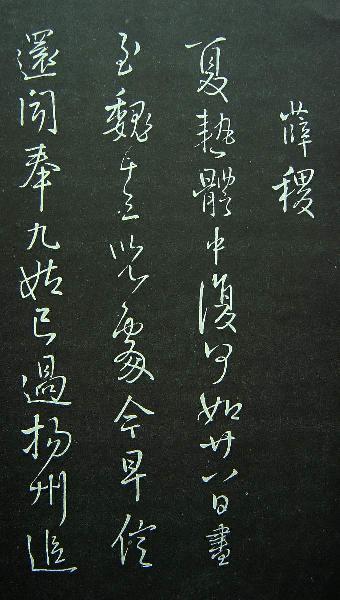 薛稷
夏熱體中復何如廿八日書
至魏處今早信
還聞奉九姑已過揚州追